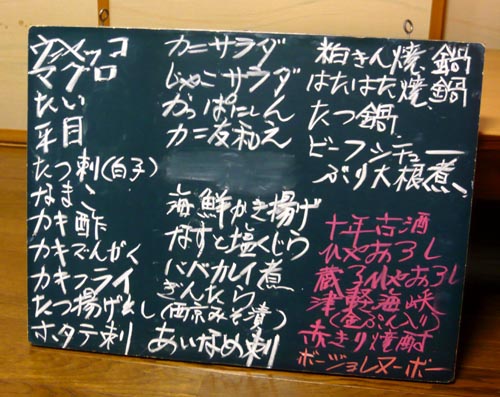 ウメッコ
マグロ
たい
平目
たつ刺(白子)
なまこ
カキ酢
カキでんがく
カキフライ
たつ揚げ出し
ホタテ刺
カニサラダ
じゃこサラダ
かっぱにしん
カニ友和え
海鮮かき揚げ
なすと塩くじら
ババカレイ煮
ぎんたら
(西京みそ漬)
あいなめ刺
粕きん焼、鍋
はたはた焼、鍋
たつ鍋
ビーフシチュー
ぶり大根煮、
十年古酒
ひやおろし
蔵子ひやおろし
津軽海峡
(金ぷん入り)
赤きり焼酎
ボージョレヌーボー